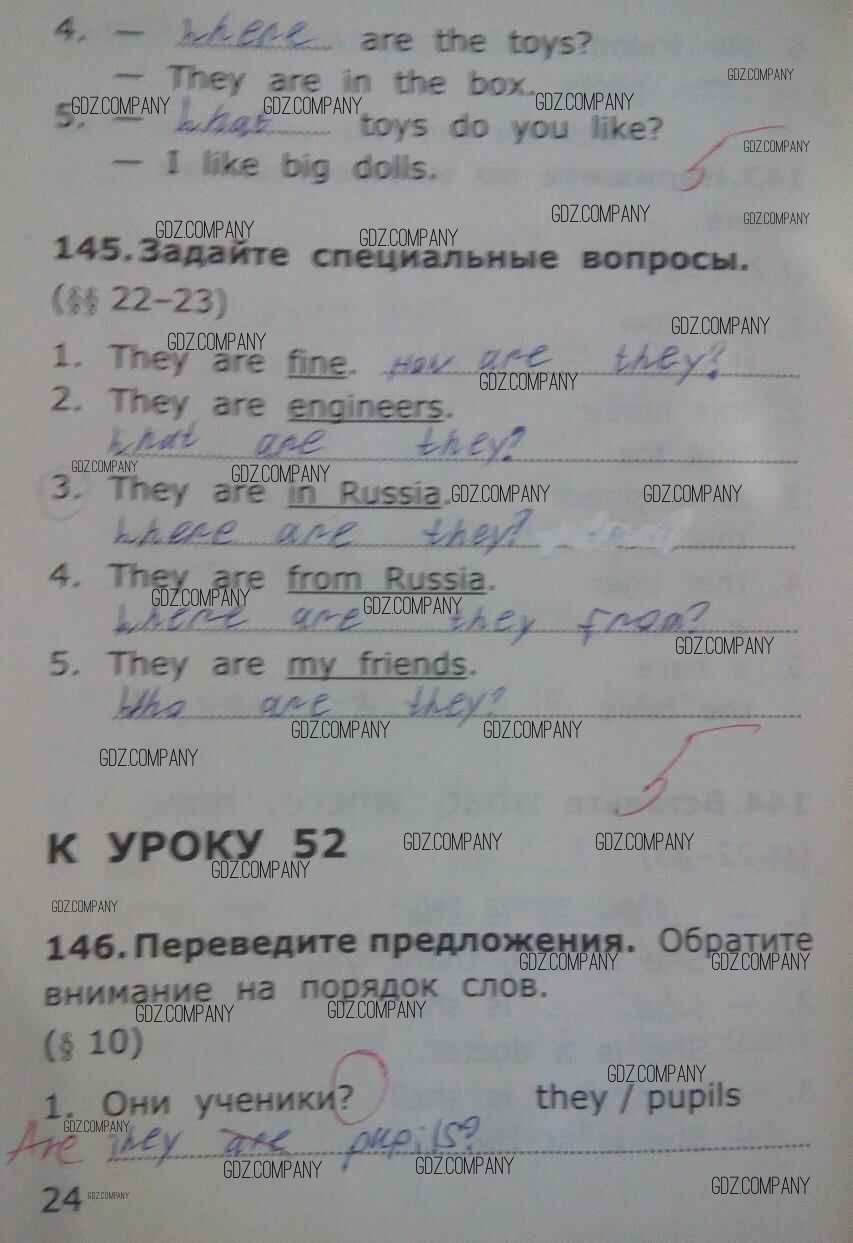 4. — where are the toys?
— They are in the box.
GDZ.COMPANY
GDZ.COMPANY GDZ.COMPANY GDZ.COMPANY
5. — what toys do you like?
GDZ.COMPANY
— I like big dolls. 5
GDZ.COMPANY GDZ.COMPANY
GDZ.COMPANY GDZ.COMPANY
145. Задайте специальные вопросы.
(§§ 22–23)
GDZ.COMPANY GDZ.COMPANY
1. They are fine. How are they?
GDZ.COMPANY
2. They are engineers.
what are they?
GDZ.COMPANY GDZ.COMPANY
3. They are in Russia. GDZ.COMPANY GDZ.COMPANY
where are they?
4. They are from Russia.
GDZ.COMPANY GDZ.COMPANY
where are they from?
GDZ.COMPANY
5. They are my friends.
Who are they?
GDZ.COMPANY GDZ.COMPANY
GDZ.COMPANY
5
К УРОКУ 52 GDZ.COMPANY GDZ.COMPANY
GDZ.COMPANY
GDZ.COMPANY
146. Переведите предложения. Обратите
GDZ.COMPANY GDZ.COMPANY
внимание на порядок слов.
GDZ.COMPANY GDZ.COMPANY
(§ 10)
GDZ.COMPANY
1. Они ученики? they / pupils
GDZ.COMPANY
Are they are pupils?
GDZ.COMPANY GDZ.COMPANY
24 GDZ.COMPANY GDZ.COMPANY